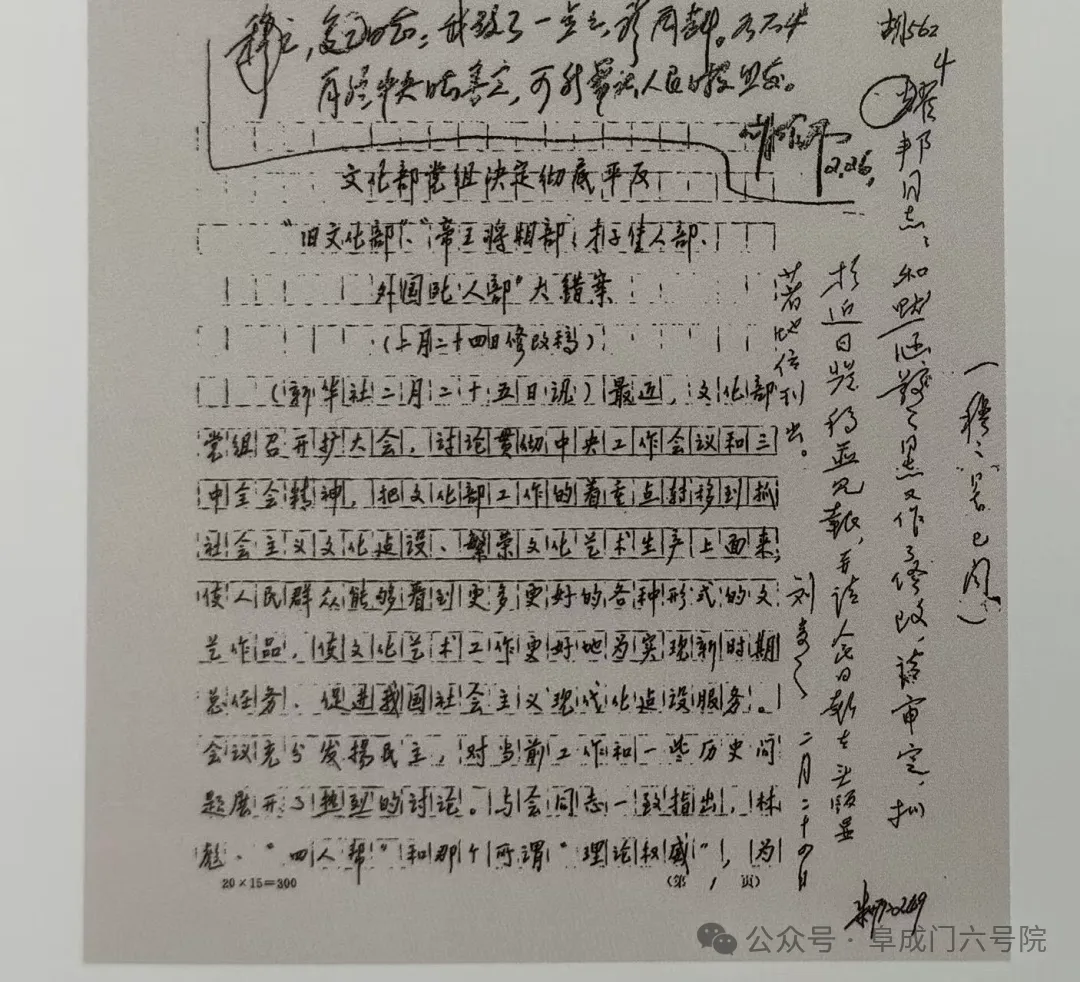 胡562
4
耀邦同志：
和默涵、敬之同志又作了修改，请审定，拟
于近日发稿并见报，并请人民日报在头版显
著地位刊出。
刘复之 二月二十四日
（穆之同志已阅）
有经中央的善意，可能
2.26.
文化部党组决定彻底平反
“旧文化部”、“帝王将相部、才子佳人部、
外国死人部”大错案
（二月二十四日修改稿）
（新华社二月二十五日讯）最近，文化部
党组召开扩大会，讨论贯彻中央工作会议和三
中全会精神，把文化部工作的着重点转移到抓
社会主义文化建设、繁荣文化艺术生产上面来，
使人民群众能够看到更多更好的各种形式的文
艺作品，使文化艺术工作更好地为实现新时期
总任务、促进我国社会主义现代化建设服务。
会议充分发扬民主，对当前工作和一些历史问
题展开了热烈的讨论。与会同志一致指出，林
彪、“四人帮”和那个所谓“理论权威”，为
20×15=300
（第 1 页）
公众号·阜成门六号院